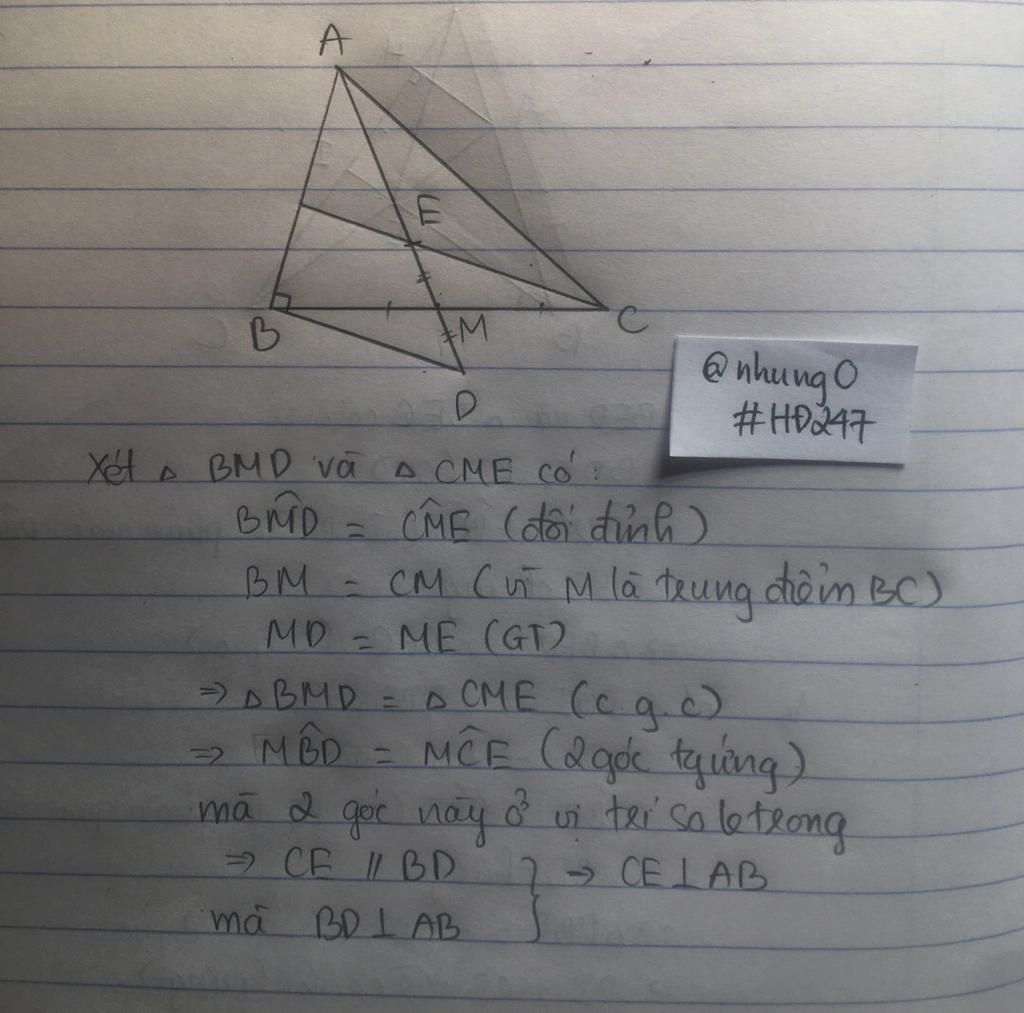 A
E
B
M
C
D
@nhung0
#HĐ247
Xét △ BMD và △ CME có:
BM̂D = CM̂E (đối đỉnh)
BM = CM (vì M là trung điểm BC)
MD = ME (GT)
⇒ △BMD = △CME (c.g.c)
⇒ MB̂D = MĈE (2 góc tự ứng)
mà 2 góc này ở vị trí so le trong
⇒ CE // BD } → CE ⊥ AB
mà BD ⊥ AB